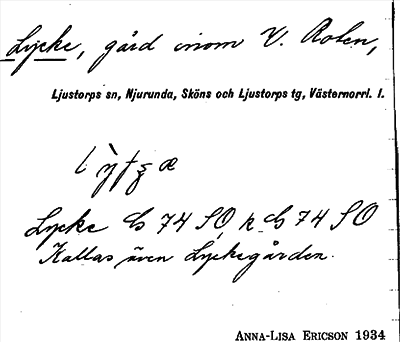 Lycke, gård inom V. Rolen,
Ljustorps sn, Njurunda, Sköns och Ljustorps tg, Västernorrl. l.
Lycke 74 SO, k 74 SO
Kallas även Lyckegården.
ANNA-LISA ERICSON 1934